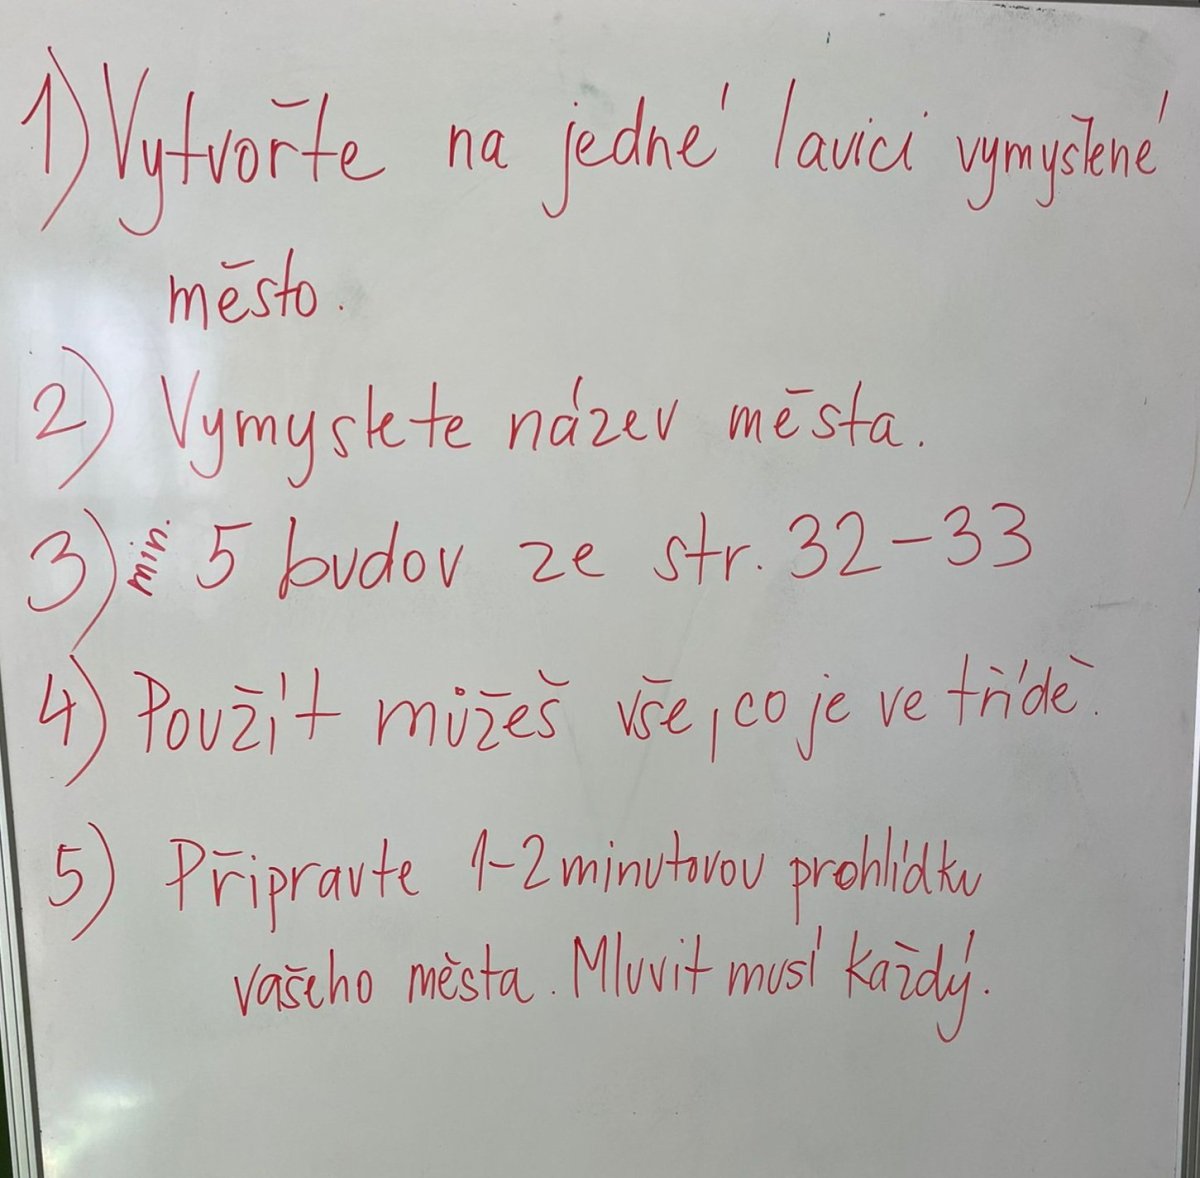 1) Vytvořte na jedné lavici vymyšlené
město.
2) Vymyslete název města.
3) min. 5 budov ze str. 32-33
4) Použít můžeš vše, co je ve třídě.
5) Připravte 1-2 minutovou prohlídku
vašeho města. Mluvit musí každý.